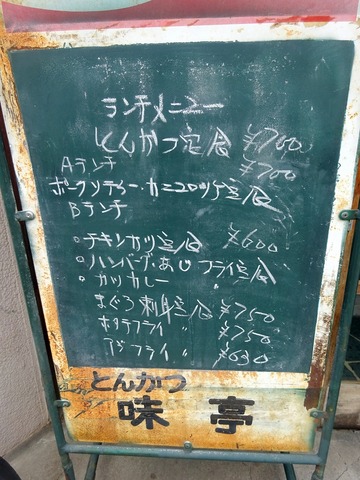 ランチメニュー
とんかつ定食 ¥700
Aランチ ¥700
ポークソテー・カニコロッケ定食
Bランチ
。チキンカツ定食 ¥600
。ハンバーグ・あじフライ定食
。カツカレー 〃
まぐろ刺身定食 ¥750
ホタテフライ 〃 ¥750
アジフライ 〃 ¥630
とんかつ
味亭